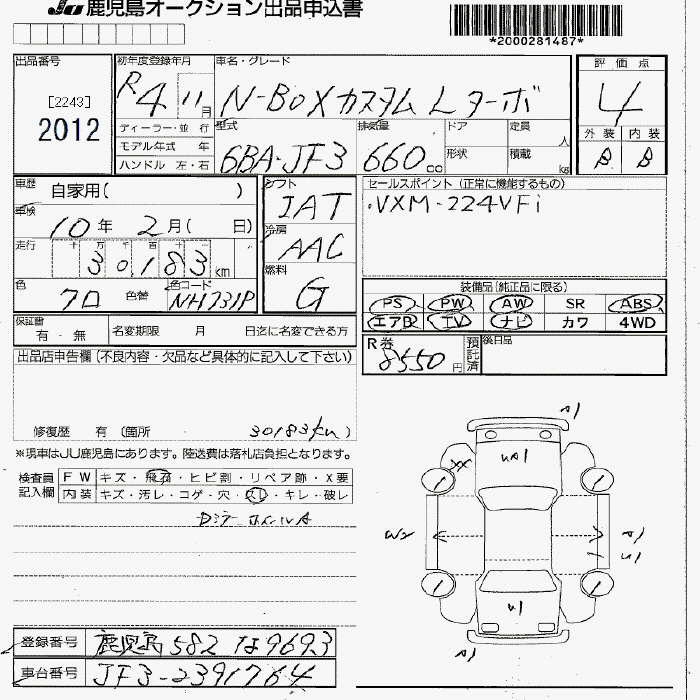 JU 鹿児島オークション出品申込書
*2000281487*
出品番号
[2243]
2012
初年度登録年月
R4 11月
ディーラー・並 行
モデル年式 年
ハンドル 左・右
車名・グレード
N-BOXカスタム Lターボ
型式
6BA-JF3
排気量
660cc
ドア
形状
定員
人
積載
kg
評価点
4
外装 内装
B B
車歴
自家用( )
車検
10年 2月( 日)
走行
十 万 千 百 十
30183km
色
クロ
色替
色コード
NH731P
シフト
IAT
冷房
AAC
燃料
G
セールスポイント (正常に機能するもの)
・VXM-224VFi
装備品(純正品に限る)
PS PW AW SR ABS
エアB TV ナビ カワ 4WD
保証書
有・無
名変期限 月 日迄に名変できる方
R券
8550円
預託済
後日品
出品店申告欄(不良内容・欠品など具体的に記入して下さい)
修復歴 有 (箇所 30183km )
※現車はJU鹿児島にあります。陸送費は落札店負担となります。
検査員
記入欄
FW キズ・飛石・ヒビ割・リペア跡・X要
内装 キズ・汚レ・コゲ・穴・スレ・キレ・破レ
A1
UA1
XX
W2
A1
U1
U1
A1
登録番号 鹿児島 582 な 9693
車台番号 JF3-2391764